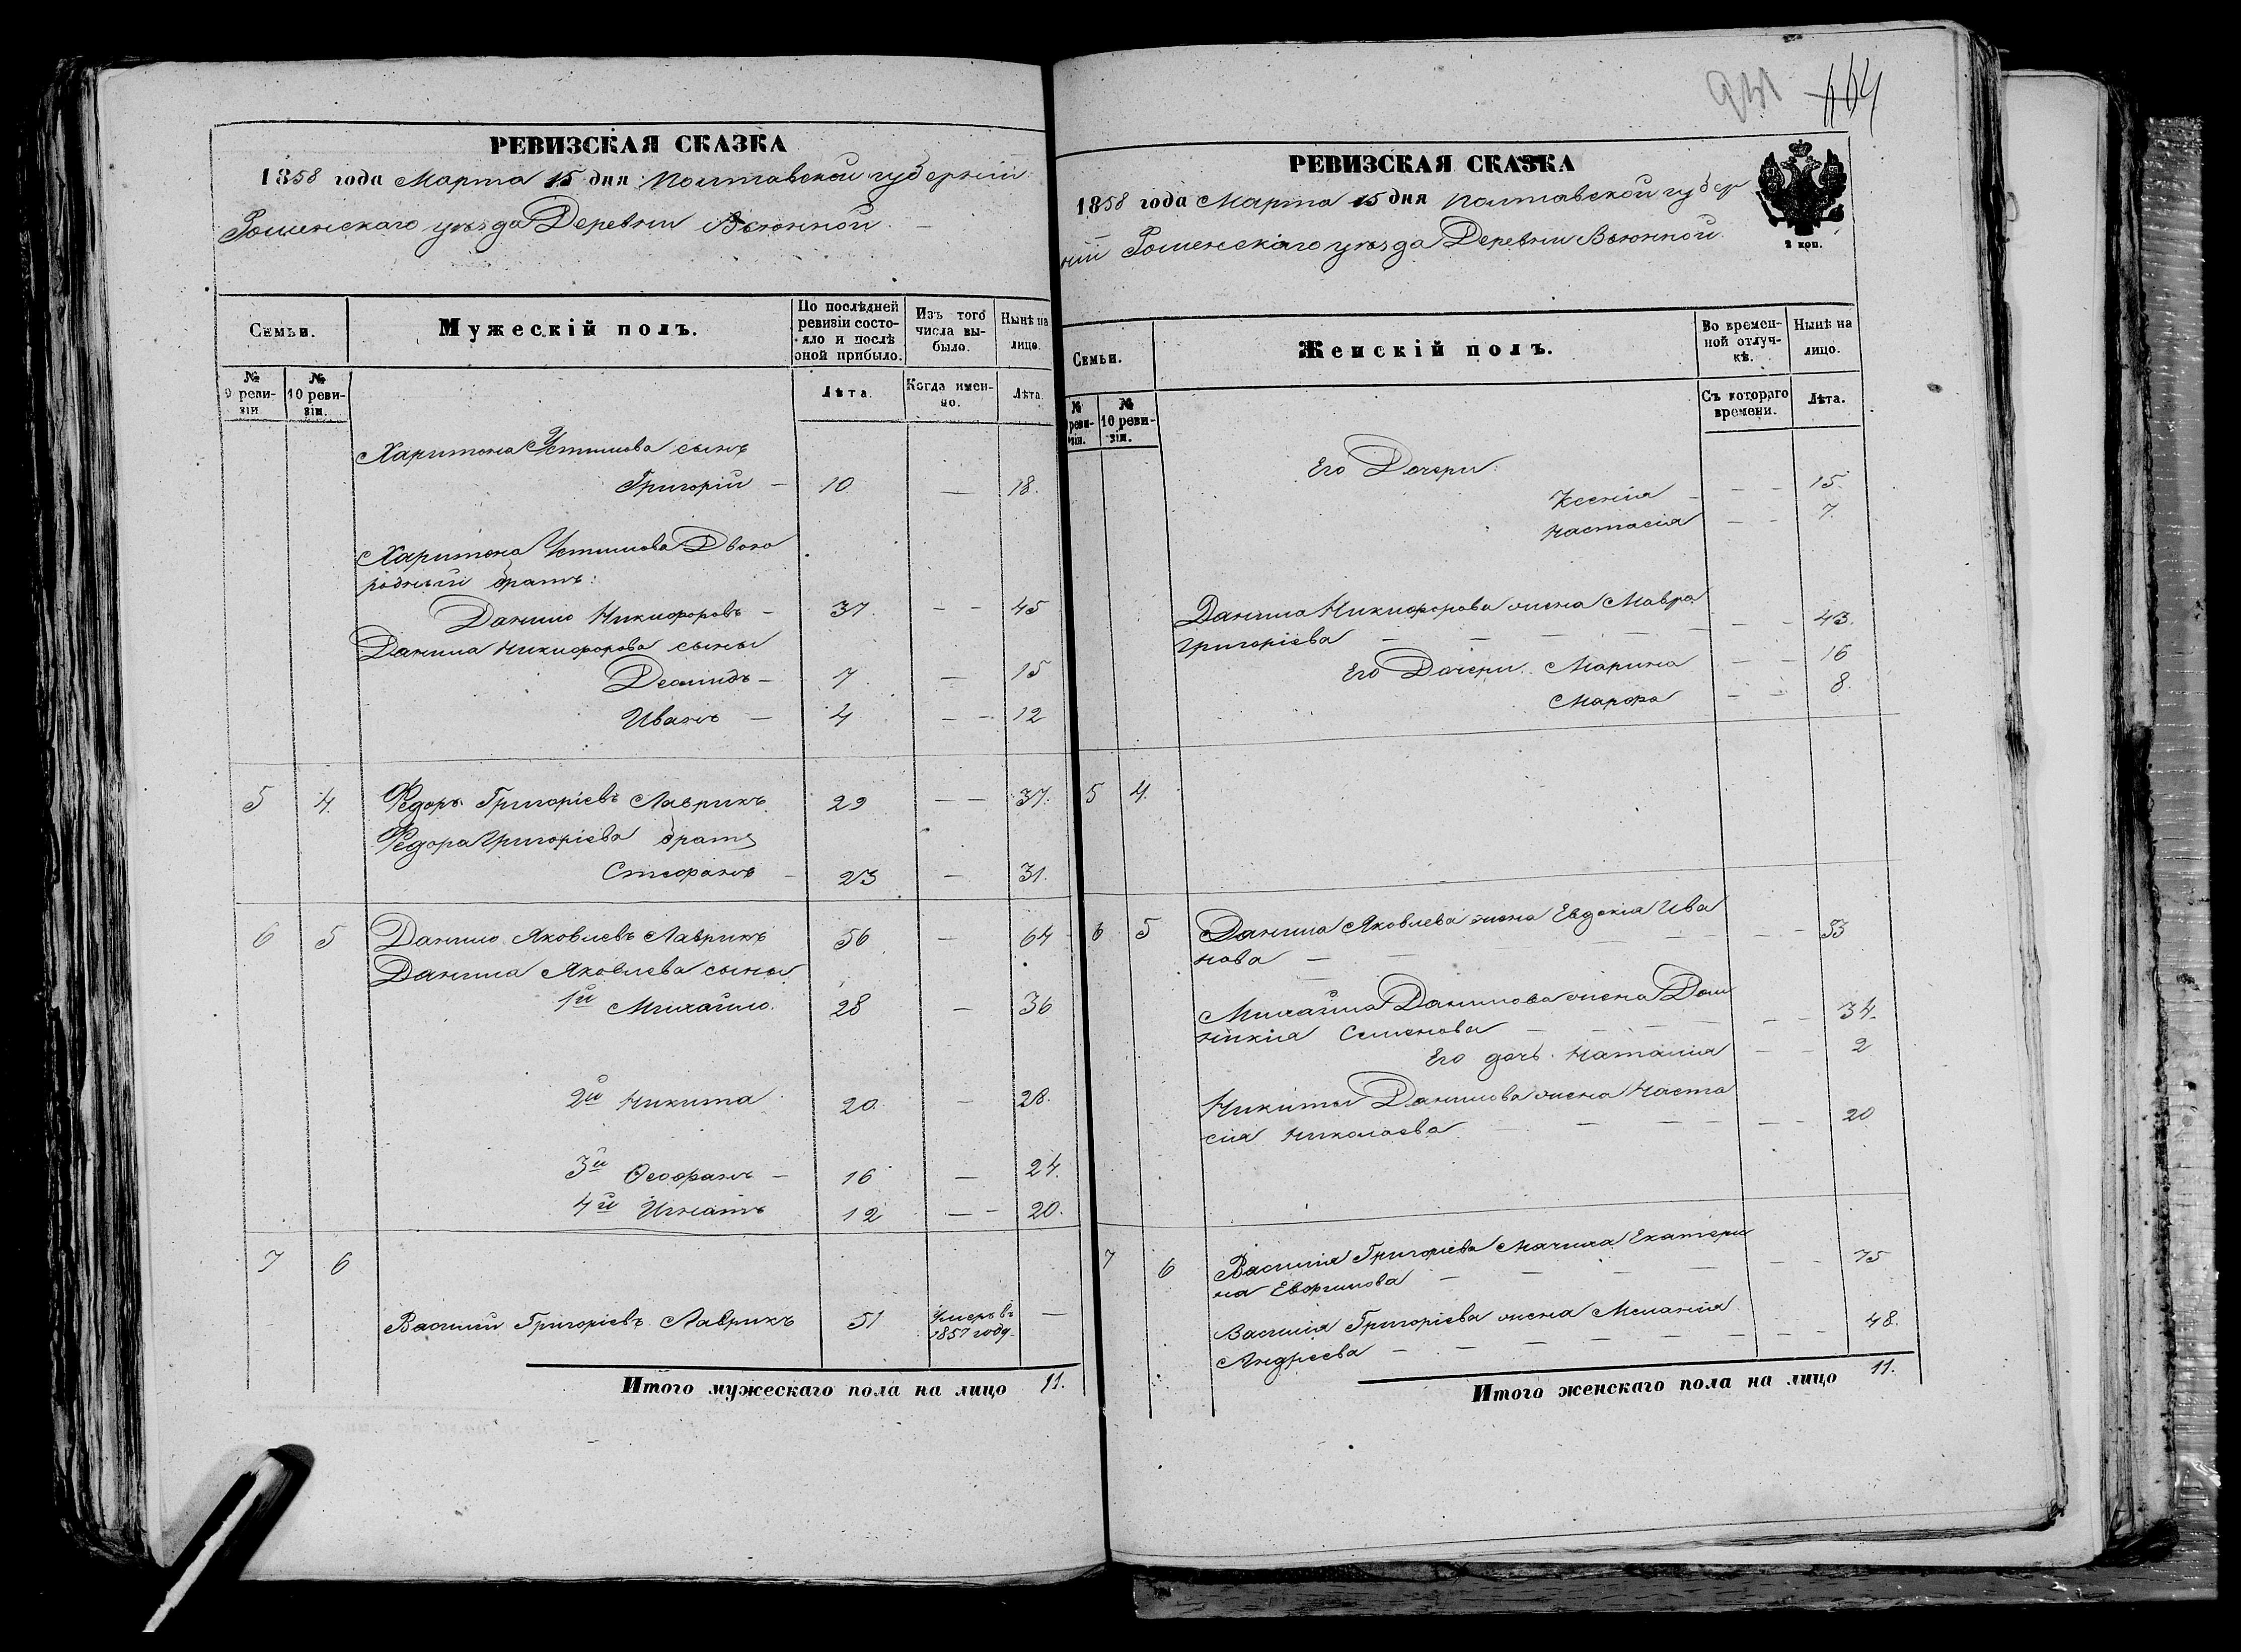 РЕВИЗСКАЯ СКАЗКА
1858 года Марта 15 дня Полтавской губерніи
Роменскаго уѣзда Деревни Вьюнной
Семьи.
Мужескій полъ.
По послѣдней ревизіи состояло и послѣ оной прибыло.
Изъ того числа выбыло.
Нынѣ на лицо.
№ 9 ревизіи
№ 10 ревизіи.
Лѣта.
Когда именно.
Лѣта.
Харитона Устимова сынъ
Григорій — 10 — 18.
Харитона Устимова Двою
родный братъ:
Данило Никифоровъ — 37. — — 45
Данила Никифорова сыны
Демидъ — 7 — 15
Иванъ — 4 — — 12
5 4. Федоръ Григоріевъ Лаврикъ 29 — — 37.
Федора Григоріева братъ
Стефанъ — 23 — 31.
6 5 Данило Яковлевъ Лаврикъ 56 — 64
Данила Яковлева сыны
1й Михайло. 28 — 36
2й Никита 20 — 28.
3й Ѳеофанъ — 16 — 24.
4й Игнатъ 12 — — 20.
7 6
Василий Григоріевъ Лаврикъ 51 Умеръ въ 1857 году —
Итого мужескаго пола на лицо 11.
164
РЕВИЗСКАЯ СКАЗКА
1858 года Марта 15 дня Полтавской губер
ніи Роменскаго уѣзда Деревни Вьюнной
2 коп.
Семьи.
Женскій полъ.
Во временной отлучкѣ.
Нынѣ на лицо.
№ ревизіи.
№ 10 ревизіи.
Съ котораго времени.
Лѣта.
Его Дочери:
Ксенія — — — 15.
Настасія — — 7.
Данила Никифорова жена Мавра
Григоріева — — — — — — — 43.
Его Дочери Марина — — 16
Марфа — — 8.
5 4.
6 5 Данила Яковлева жена Евдокія Ива
нова — — — — — — 53
Михайла Данилова жена Дом
никія Семенова — — — — — — 34.
Его дочь Наталія — — 2
Никиты Данилова жена Наста
сия Николаева — — — — — — 20
7 6 Василія Григоріева Мачиха Екатери
на Евфимова — — — — — — 75
Василія Григоріева жена Меланія
Андреева — — — — — — — 48.
Итого женскаго пола на лицо 11.